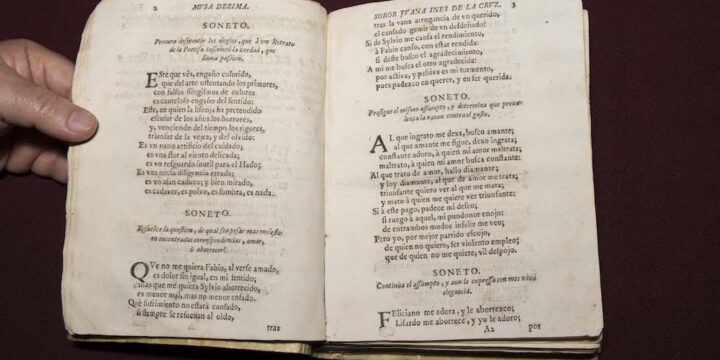 2 MUSA DEZIMA.
SONETO.
Procura desmentir los elogios, que à un Retrato
de la Poetisa inscriviò la verdad, que
llama passion.
Este que vès, engaño colorido,
que del arte ostentando los primores,
con falsos silogismos de colores
es cauteloso engaño del sentido:
Este, en quien la lisonja ha pretendido
escusar de los años los horrores,
y, venciendo del tiempo los rigores,
triunfar de la vejez, y del olvido:
Es vn vano artificio del cuidado;
es vna flor al viento delicada;
es vn resguardo inutil para el Hado;
Es vna necia diligencia errada;
es vn afan caduco; y bien mirado,
es cadaver, es polvo, es sombra, es nada.
SONETO.
Resuelve la question, de qual sea pesar mas molesto
en encontradas correspondencias, amar,
ò aborrecer?
QVe no me quiera Fabio, al verse amado,
es dolor sin igual, en mi sentido;
mas que me quiera Sylvio aborrecido,
es menor mal, mas no menor enfado.
Què sufrimiento no estarà cansado,
si siempre le resuenan al oìdo,
tras
SOROR JVANA INES DE LA CRVZ. 3
tras la vana arrogancia de vn querido,
el cansado gemir de vn desdeñado?
Si de Sylvio me cansa el rendimiento,
à Fabio canso, con estar rendida:
si deste busco el agradecimiento,
A mi me busca el otro agradecida:
por activa, y passiva es mi tormento,
pues padezco en querer, y en ser querida.
SONETO.
Prosigue el mismo assumpto, y determina que prevalezca
la razon contra el gusto.
AL que ingrato me dexa, busco amante;
al que amante me sigue, dexo ingrata;
constante adoro, à quien mi amor maltrata;
maltrato, à quien mi amor busca constante:
Al que trato de amor, hallo diamante;
y soy diamante, al que de amor me trata;
triunfante quiero ver al que me mata;
y mato à quien me quiere ver triunfante:
Si à este pago, padece mi deseo;
si ruego à aquel, mi pundonor enojo:
de entrambos modos infeliz me veo;
Pero yo, por mejor partido escojo,
de quien no quiero, ser violento empleo;
que de quien no me quiere, vil despojo.
SONETO.
Continùa el assumpto, y aun le expressa con mas viva
elegancia.
FEliciano me adora, y le aborrezco;
Lisardo me aborrece, y yo le adoro;
A2 por